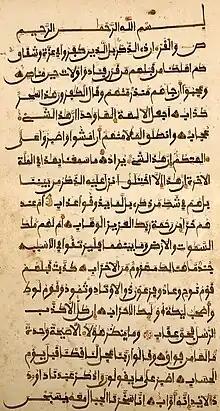 بسم الله الرحمن الرحيم
ص والقرءان ذي الذكر بل الذين كفروا في عزة وشقاق
كم اهلكنا من قبلهم من قرن فنادوا ولات حين مناص
وعجبوا أن جاءهم منذر منهم وقال الكفرون هذا سحر
كذاب اجعل الالهة الها واحدا ان هذا لشيء
عجاب وانطلق الملأ منهم أن امشوا واصبروا على
ءالهتكم إن هذا لشيء يراد ما سمعنا بهذا في الملة
الاخرة إن هذا إلا اختلق أءنزل عليه الذكر من بيننا
بل هم في شك من ذكري بل لما يذوقوا عذاب أم عند
هم خزائن رحمة ربك العزيز الوهاب أم لهم ملك
السموات والارض وما بينهما فليرتقوا في الاسبب
جند ما هنالك مهزوم من الاحزاب كذبت قبلهم
قوم نوح وعاد وفرعون ذو الاوتاد وثمود وقوم لوط
وأصحب ليكة أولئك الاحزاب إن كل إلا كذب
الرسل فحق عقاب وما ينظر هؤلاء الا صيحة وحدة
ما لها من فواق وقالوا ربنا عجل لنا قطنا قبل يوم
الحساب اصبر على ما يقولون واذكر عبدنا داود ذ
ا الايد إنه أواب إنا سخرنا الجبال معه يسبحن